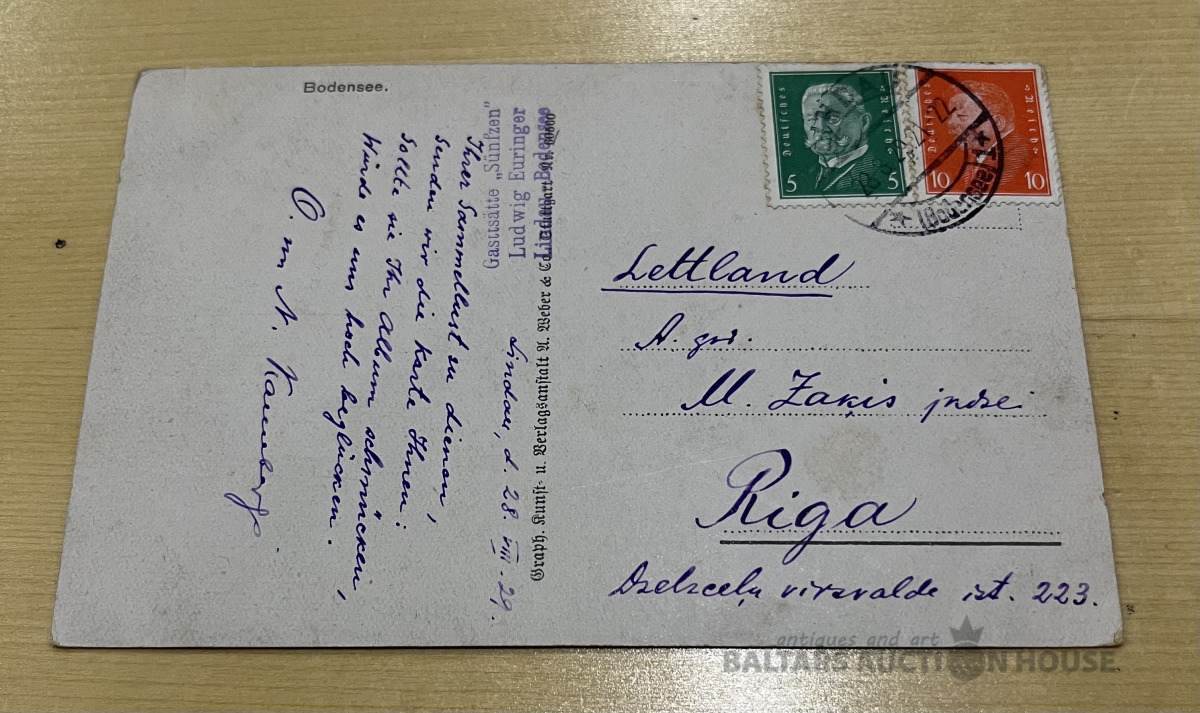 Bodensee.
Gaststätte "Sünfzen"
Ludwig Euringer
Lindau-Bodensee
Lindau, d. 28. VIII. 29.
Ihrer Sammellust zu dienen,
Senden wir die Karte Ihnen:
Sollte sie Ihr Album schmücken,
Würde es uns hoch beglücken.
O. un N.
Graph. Kunst- u. Verlagsanstalt A. Weber & Co.
Deutsches Reich
5 5
Deutsches Reich
10 10
(Bodensee)
Lettland
A. god.
M. Zaķis jndze
Riga
Dzelzceļu virsvalde ist. 223.
antiques and art
BALTARS AUCTION HOUSE